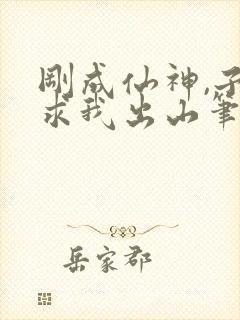 剛成仙神,子
求我出山筆
岳家郡